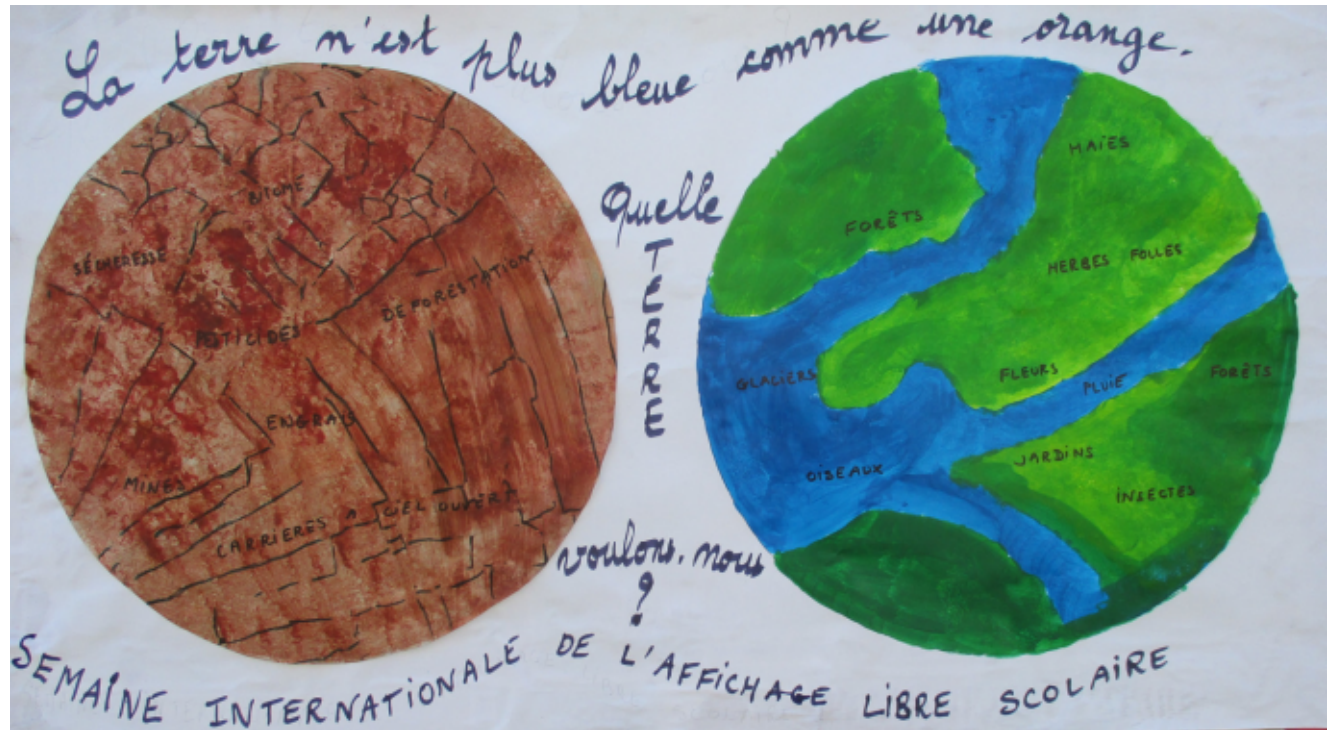 La terre n'est plus bleue comme une orange.
Quelle
TERRE
voulons-nous
?
BITUME
SÉCHERESSE
DÉFORESTATION
PESTICIDES
ENGRAIS
MINES
CARRIERES A CIEL OUVERT
HAIES
FORÊTS
HERBES FOLLES
GLACIERS
FLEURS
PLUIE
FORÊTS
OISEAUX
JARDINS
INSECTES
SEMAINE INTERNATIONALE DE L'AFFICHAGE LIBRE SCOLAIRE